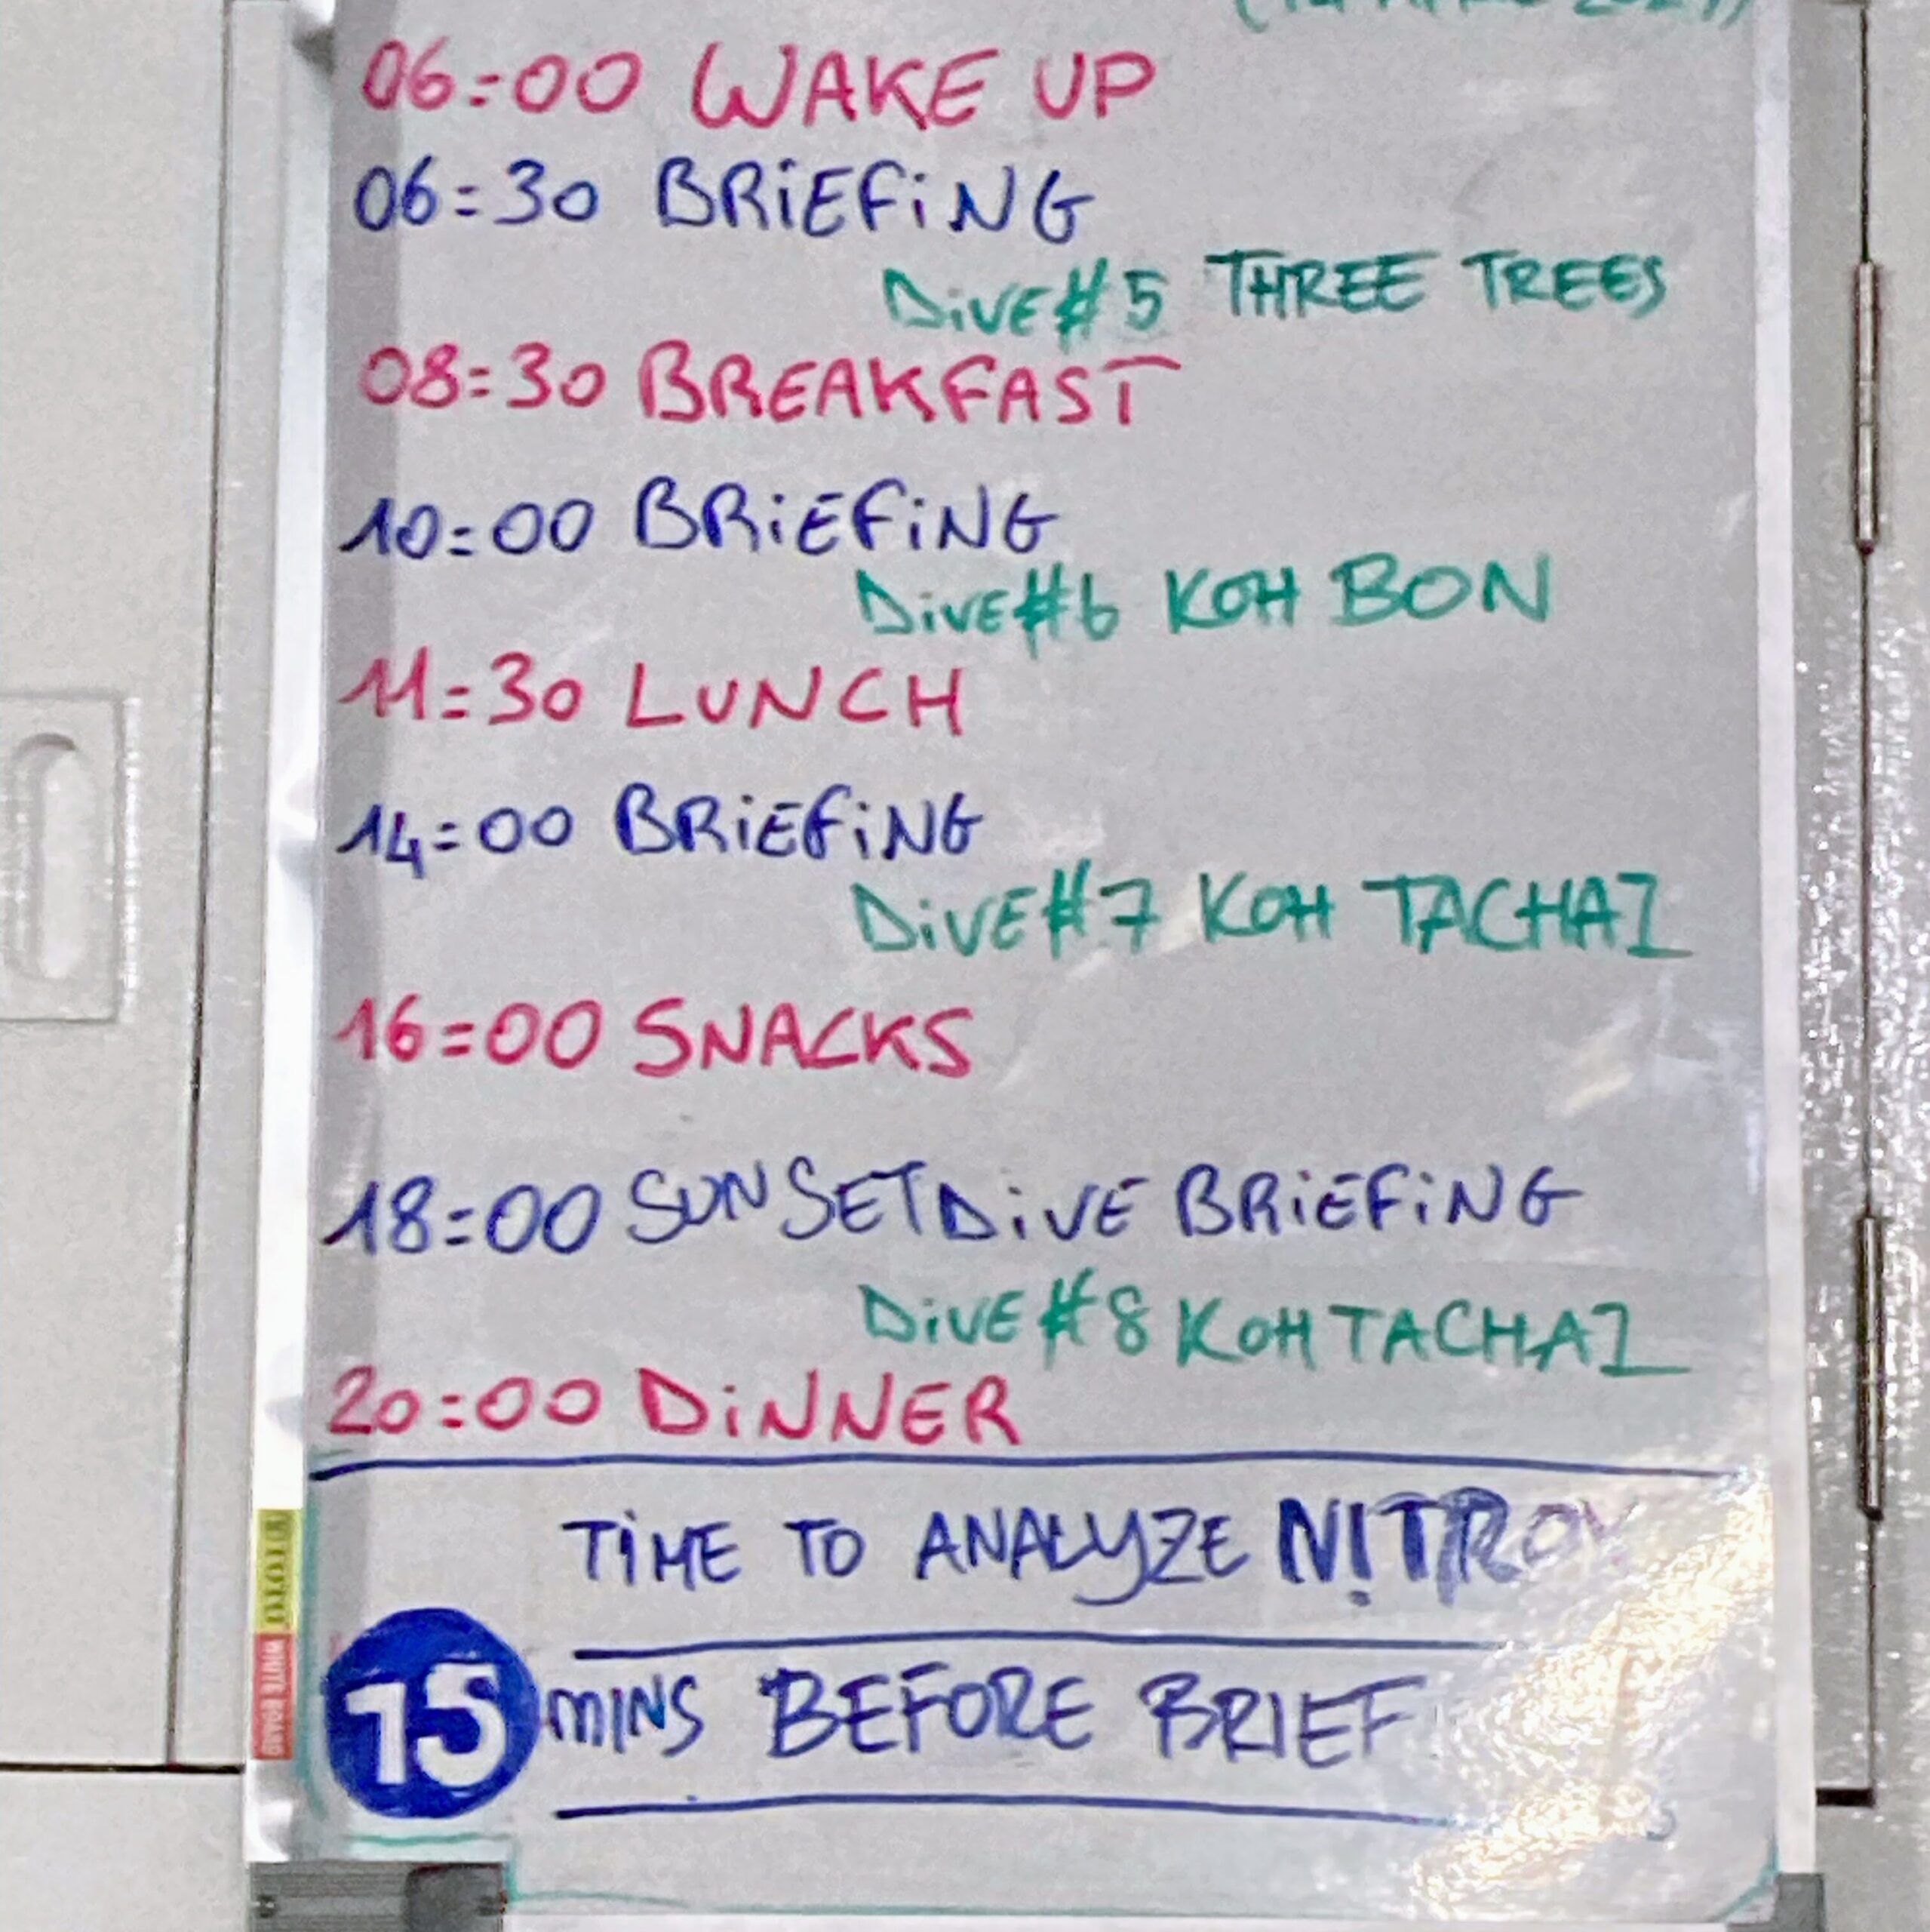 06:00 WAKE UP
06:30 BRiEFiNG
DiVE#5 THREE TREES
08:30 BREAKFAST
10:00 BRiEFiNG
DiVE#6 KOH BON
11:30 LUNCH
14:00 BRiEFiNG
DiVE#7 KOH TACHAI
16:00 SNACKS
18:00 SUNSET DiVE BRiEFiNG
DiVE#8 KOH TACHAI
20:00 DiNNER
TiME TO ANALYZE NITROX
15 MINS BEFORE BRIEF
WHITE BOARD